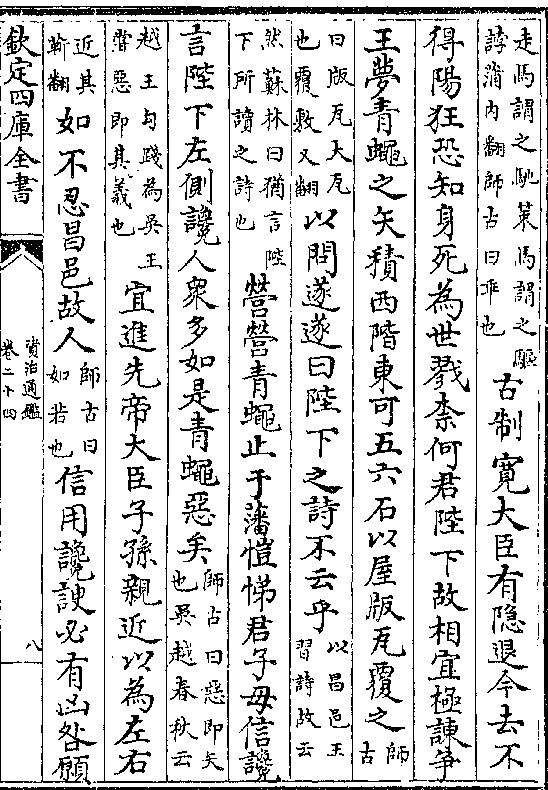 走馬謂之馳策馬謂之驅
誖蒲内翻師古曰乖也
古制寬大臣有隱退今去不
得陽狂恐知身死為世戮柰何君陛下故相宜極諫爭
王夢青蠅之矢積西階東可五六石以屋版瓦覆之
師
古
曰版瓦大瓦
也覆敷又翻
以問遂遂曰陛下之詩不云乎
以昌邑王
習詩故云
然蘇林曰猶言陛
下所讀之詩也
營營青蠅止于藩愷悌君子毋信讒
言陛下左側讒人衆多如是青蠅惡矣
師古曰惡即矢
也吳越春秋云
越王句踐為吳王
嘗惡即其義也
宜進先帝大臣子孫親近以為左右
近其
靳翻
如不忍昌邑故人
師古曰
如若也
信用讒諛必有凶咎願
欽定四庫全書
資治通鑑
卷二十四
八